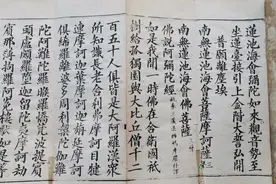 蓮池海會彌陀如來觀音勢至
坐蓮臺接引上金階大誓弘開
普願離塵埃
南無蓮池海會菩薩摩訶薩三
佛說阿彌陀經
如是我聞一時佛在舍衛國祇
樹給孤獨園與大比丘僧千二
百五十人俱皆是大阿羅漢衆
所知識長老舍利弗摩訶目犍
連摩訶迦葉摩訶迦旃延摩訶
俱絺羅離婆多周利槃陀伽難
陀阿難陀羅睺羅憍梵波提賓
頭盧頗羅墮迦留陀夷摩訶劫
賓那薄拘羅阿㝹樓馱如是